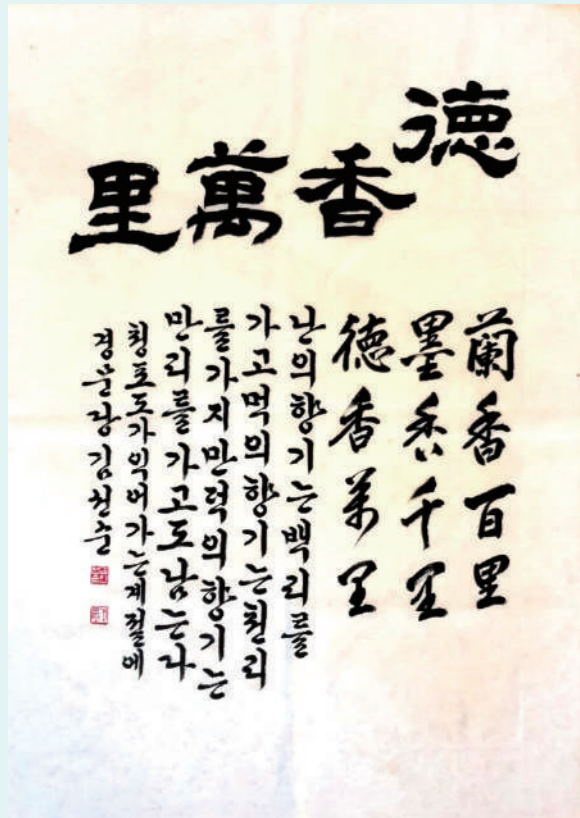 德香萬里
蘭香百里
墨香千里
德香萬里
난의향기는백리를
가고먹의향기는천리
를가지만덕의향기는
만리를가고도남는다
청포도가익어가는계절에
경문당김천순